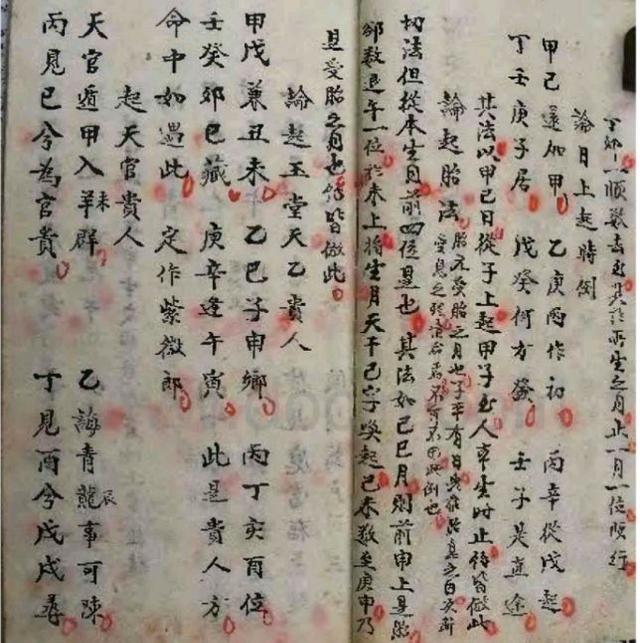 一順數去至其於所生之月止一月一位順行
論日上起時例
甲己還加甲 乙庚丙作初 丙辛從戊起
丁壬庚子居 戊癸何方發 壬子是直途
其法以甲己日從子上起甲子至人本生時止餘皆倣此
論起胎法 胎元受胎之月也子平有曰
切法但從本生月前四位是也 其法如己巳月則前申上是胎
卻數退午一位於未上將生月天干己字喚起己未數至庚申乃
是受胎之月也餘皆倣此
論起玉堂天乙貴人
甲戊兼丑未 乙己子申鄉 丙丁亥酉位
壬癸卯巳藏 庚辛逢午寅 此是貴人方
命中如遇此 定作紫微郎
起天官貴人
天官遁甲入羊未群 乙誨青龍辰事可陳
丙見巳兮為官貴 丁見酉兮戊戌尋